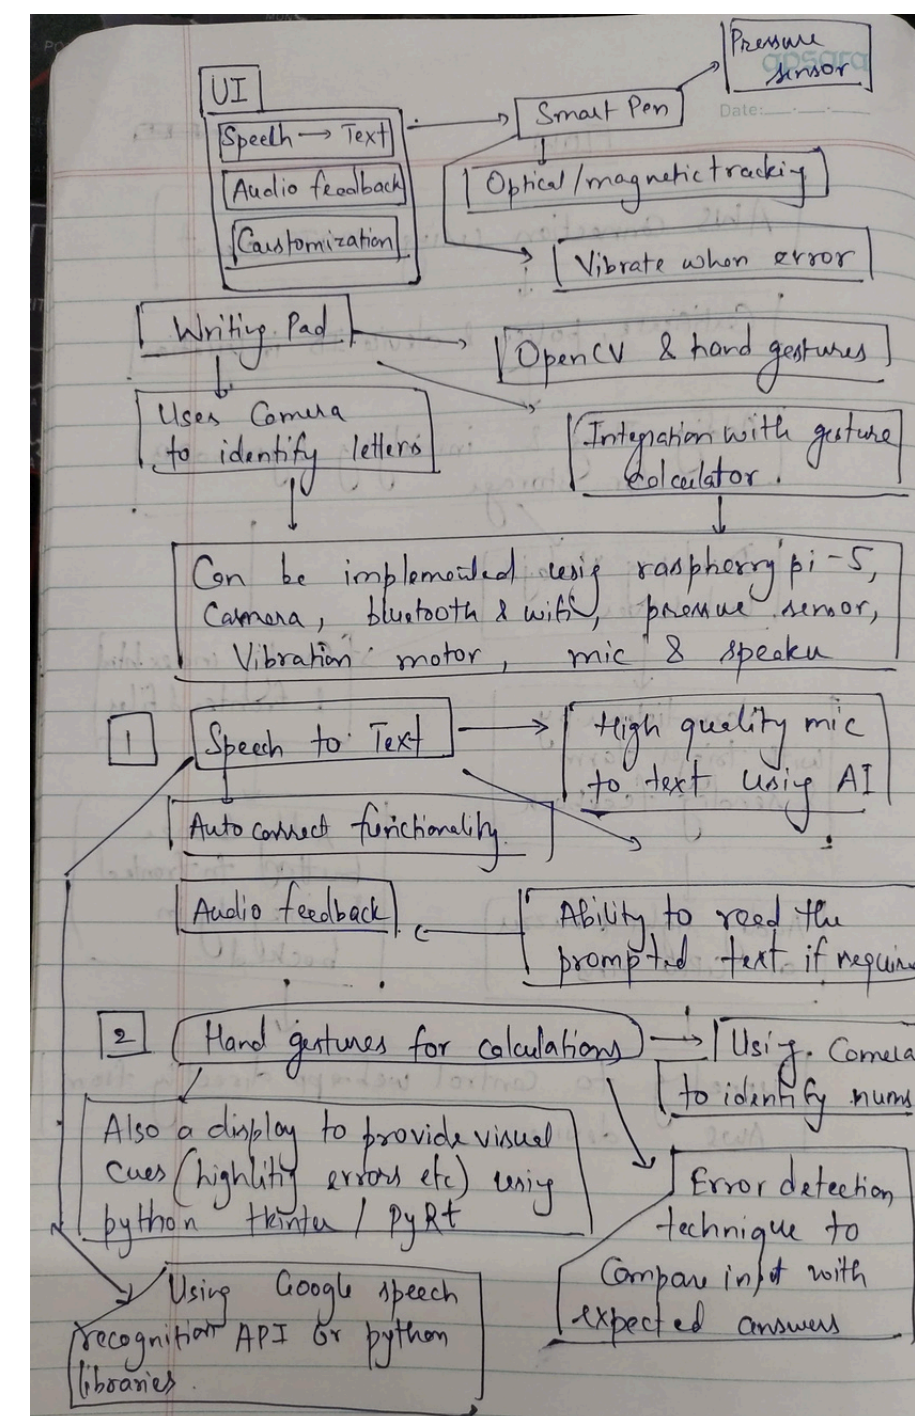 Pressure
sensor
apsara
Date:
UI
Smart Pen
Speech → Text
Optical/magnetic tracking
Audio feedback
Caustomization
Vibrate when error
Writing Pad
OpenCV & hand gestures
Uses Camera
to identify letters
Integration with gesture
Calculator.
Can be implemented using raspherry pi-5,
Camera, bluetooth & wifi, pressure sensor,
Vibration motor, mic & speaker
1
Speech to Text
High quality mic
to text using AI
Auto correct functionality
Audio feedback
Ability to read the
prompted text if require
2
Hand gestures for calculations
Using Camera
to identify nums
Also a display to provide visual
cues (highlitig errors etc) using
python tkinter / PyRt
Error detection
technique to
Compare input with
expected answers
Using Google speech
recognition API or python
libraries.